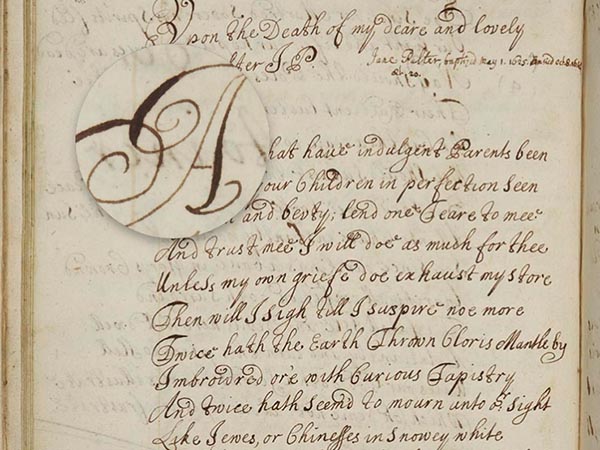 Vpon the Death of my deare and lovely
ter I.P
Jane Pulter, May 1. 1625.
Æt. 20.
A
hat have indulgent Parents been
your Children in perfection seen
and bevty; lend one Teare to mee
And trust mee I will doe as much for thee
Unless my own griefe doe exhaust my store
Then will I sigh till I suspire noe more
Twice hath the Earth Thrown Cloris Mantle by
Imbroidred or'e with Curious Tapistry
And twice hath seem'd to mourn unto oʳ sight
Like Jewes, or Chinesses in snowey white